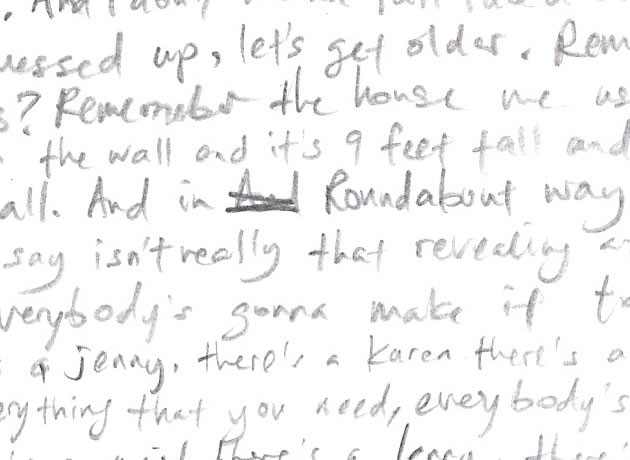 up, let's get older. Rem
s? Rememeber the house me us
the wall and it's 9 feet tall and
all. And in Roundabout way
say isn't really that revealing
verybody's gonna make if
a jenny. there's a Karen there's a
erything that you need, everybody's
there's a